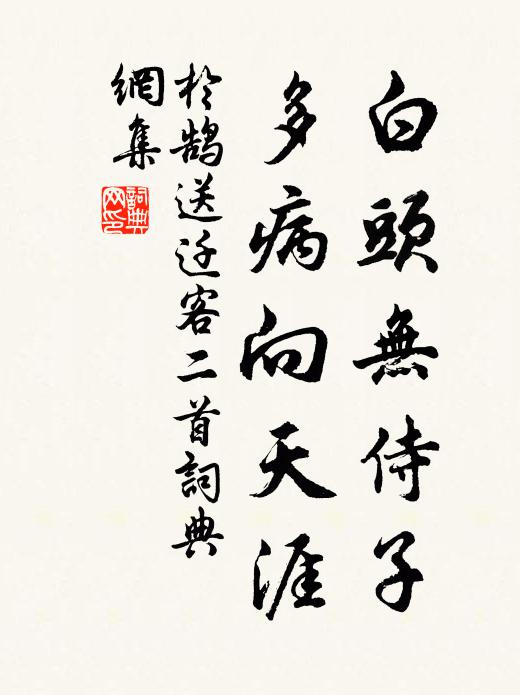 白頭無侍子
多病向天涯
於鵠送迁客二首詞典
網集
詞典网印